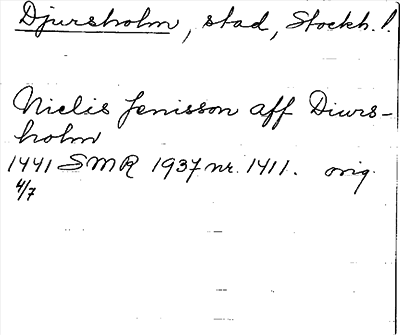 Djursholm, stad, Stockh. l.
Nielis Jenisson aff Diurs-
holm
1441 SMR 1937 nr. 1411. orig.
4/7